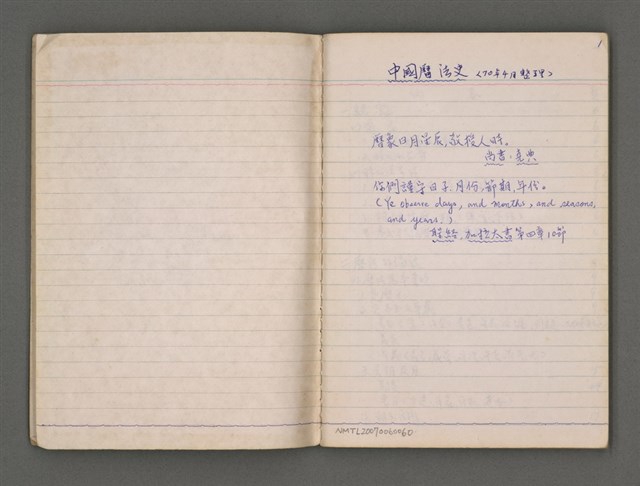 1
中國曆法史（70年4月整理）
曆象日月星辰，敬授人時。
尚書·堯典
你們謹守日子、月份、節期、年代。
(Ye observe days, and months, and seasons,
and years.)
聖經，加拉太書第四章10節
NMTL20070060060